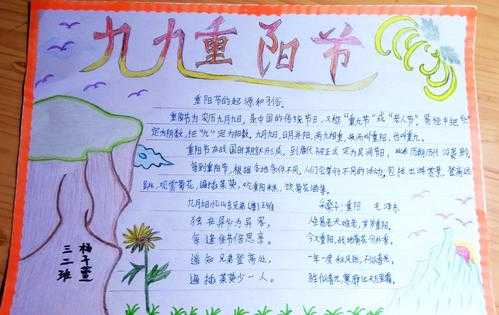 九九重阳节
重阳节的起源和习俗。
重阳节为农历九月九日,是中国的传统节日,又称"重九节"或"老人节"。易经中把"六"
定为阴数,把"九"定为阳数,九月九日,日月并阳,两九相重,故而叫重阳,也叫重九。
重阳节在战国时期就已形成,到唐代被正式定为民间节日,此后历朝历代沿袭至今
每到重阳节,根据各地条件不同,人们会举行不同的活动,包括出游赏景、登高远
眺、观赏菊花、遍插茱萸、吃重阳糕、饮菊花酒等。
九月九日忆山东兄弟(唐)王维
独在异乡为异客,
每逢佳节倍思亲。
遥知兄弟登高处,
遍插茱萸少一人。
采桑子·重阳 毛泽东
人生易老天难老,岁岁重阳,
今又重阳,战地黄花分外香。
一年一度秋风劲,不似春光,
胜似春光,寥廓江天万里霜。
三二班
杨子萱